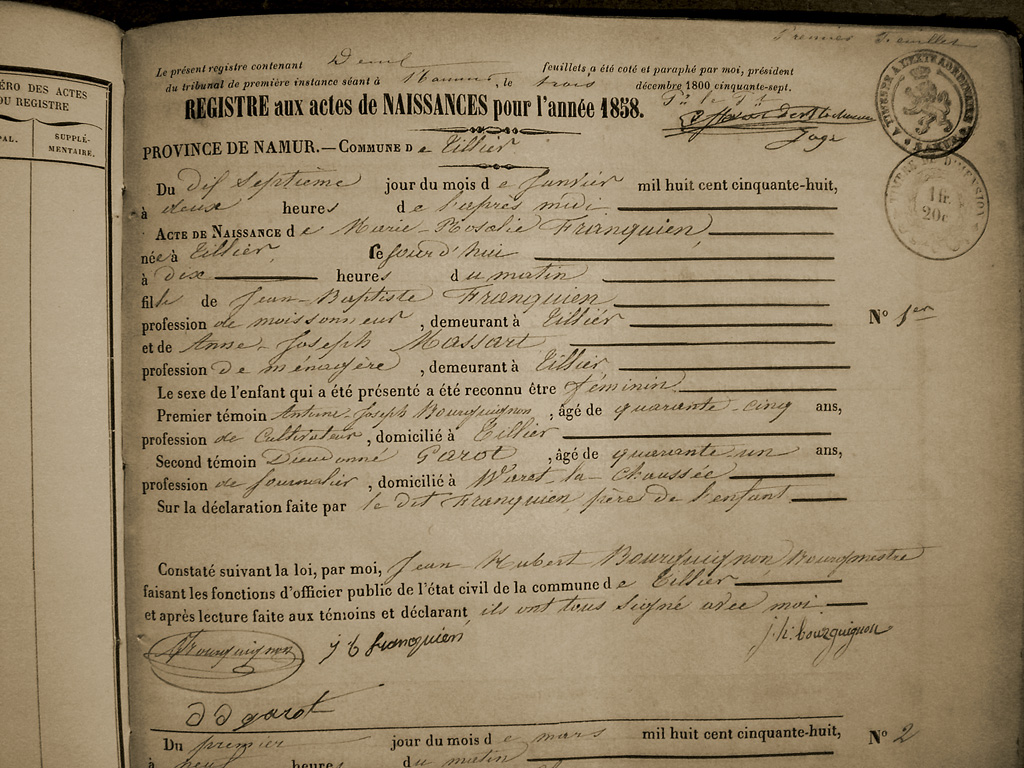 Premier Feuillet
RO DES ACTES
DU REGISTRE
PAL.
SUPPLÉ-
MENTAIRE.
Le présent registre contenant feuillets a été coté et paraphé par moi, président
du tribunal de première instance séant à Namur, le trois décembre 1800 cinquante-sept.
REGISTRE aux actes de NAISSANCES pour l'année 1858.
Juge
PROVINCE DE NAMUR.—COMMUNE De Tillier
Du dif septième jour du mois de Janvier mil huit cent cinquante-huit,
à deux heures de l'après midi
ACTE DE NAISSANCE de Marie-Rosalie Franquien
née à Tillier, le jourd'hui
à dix heures du matin
fille de Jean-Baptiste Franquien
profession de moissonneur, demeurant à Tillier
N° 1er
et de Anne-Joseph Massart
profession de ménagère, demeurant à Tillier
Le sexe de l'enfant qui a été présenté a été reconnu être féminin
Premier témoin Antoine-Joseph Bourguignon, âgé de quarante-cinq ans,
profession de Cultivateur, domicilié à Tillier
Second témoin Dieudonné Garot, âgé de quarante-un ans,
profession de Journalier, domicilié à Waret-la-Chaussée
Sur la déclaration faite par le dit Franquien, père de l'enfant
Constaté suivant la loi, par moi, Jean-Hubert Bourguignon, Bourgmestre
faisant les fonctions d'officier public de l'état civil de la commune de Tillier
et après lecture faite aux témoins et déclarant, ils ont tous signé avec moi.
Bourguignon j b francquien j. h. bourguignon
d d garot
Du premier jour du mois de mars mil huit cent cinquante-huit,
N° 2
à neuf heures du matin
1 fr.
20c